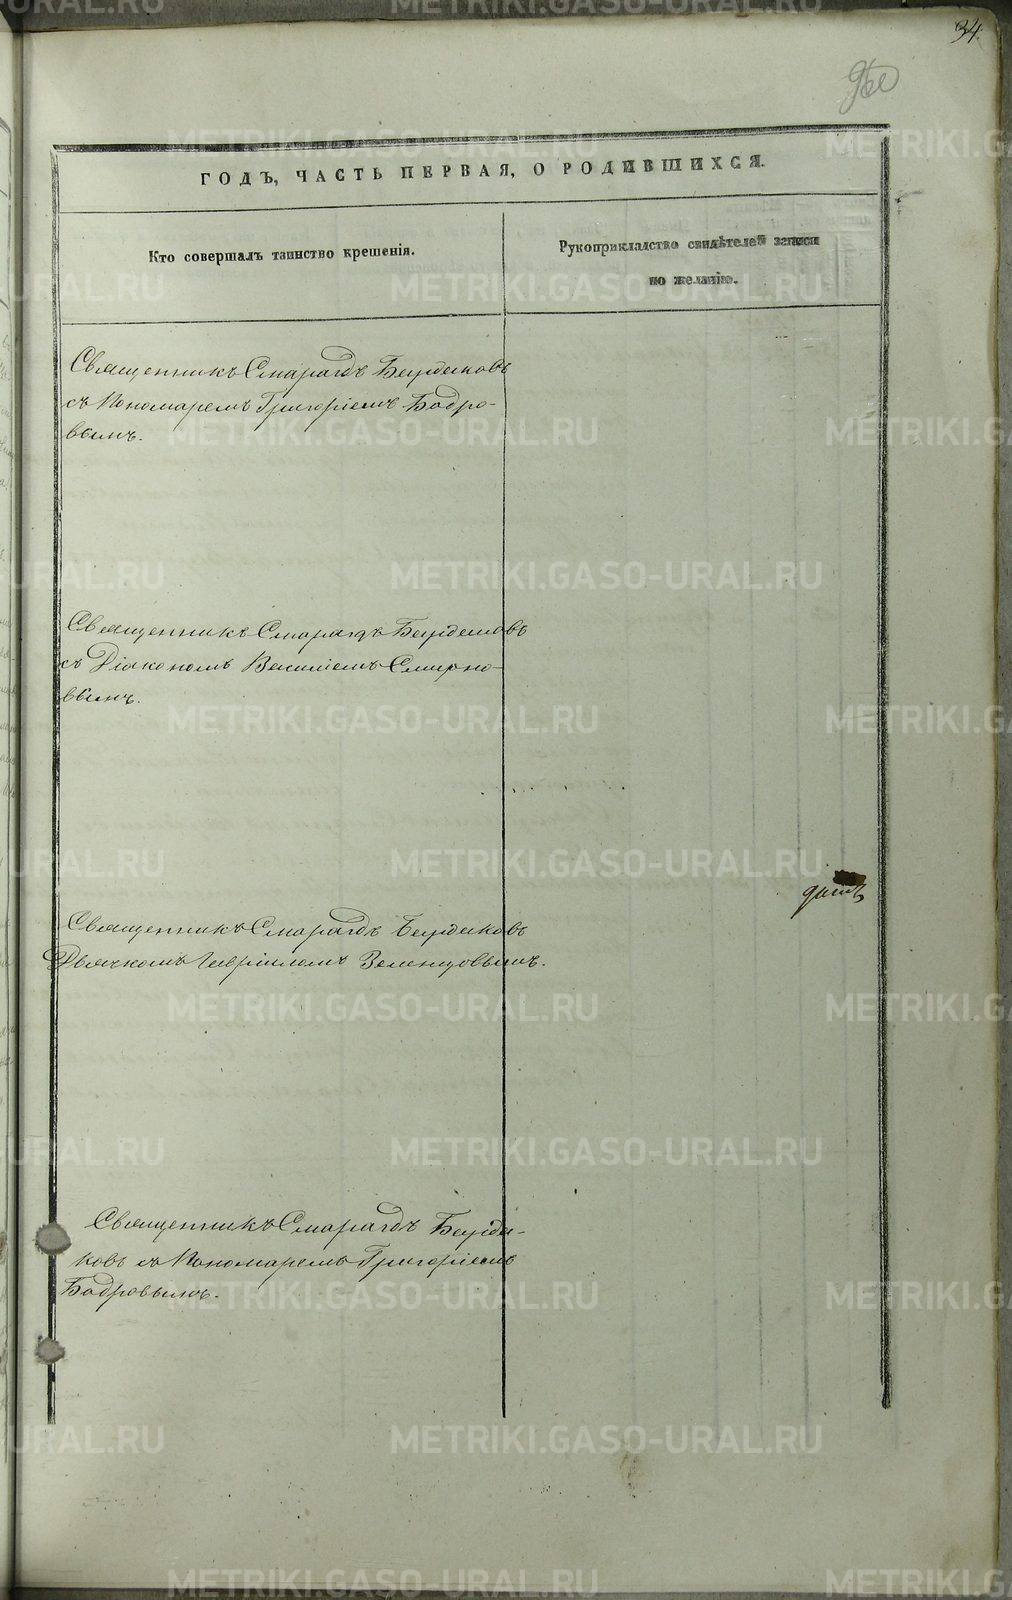 34.
ГОДЪ, ЧАСТЬ ПЕРВАЯ, О РОДИВШИХСЯ.
Кто совершалъ таинство крещенія.
Рукоприкладство свидѣтелей записи
по желанію.
Священникъ Смарагдъ Бирюковъ
съ Пономаремъ Григоріемъ Бодро-
вымъ.
Священникъ Смарагдъ
съ Діакономъ Василіемъ Смирно-
вымъ.
Священникъ Смарагдъ
Дьячкомъ Гавріиломъ Зеленцовымъ.
Священникъ Смарагдъ
ковъ съ Пономаремъ Григоріемъ
Бодровымъ.
METRIKI.GASO-URAL.RU